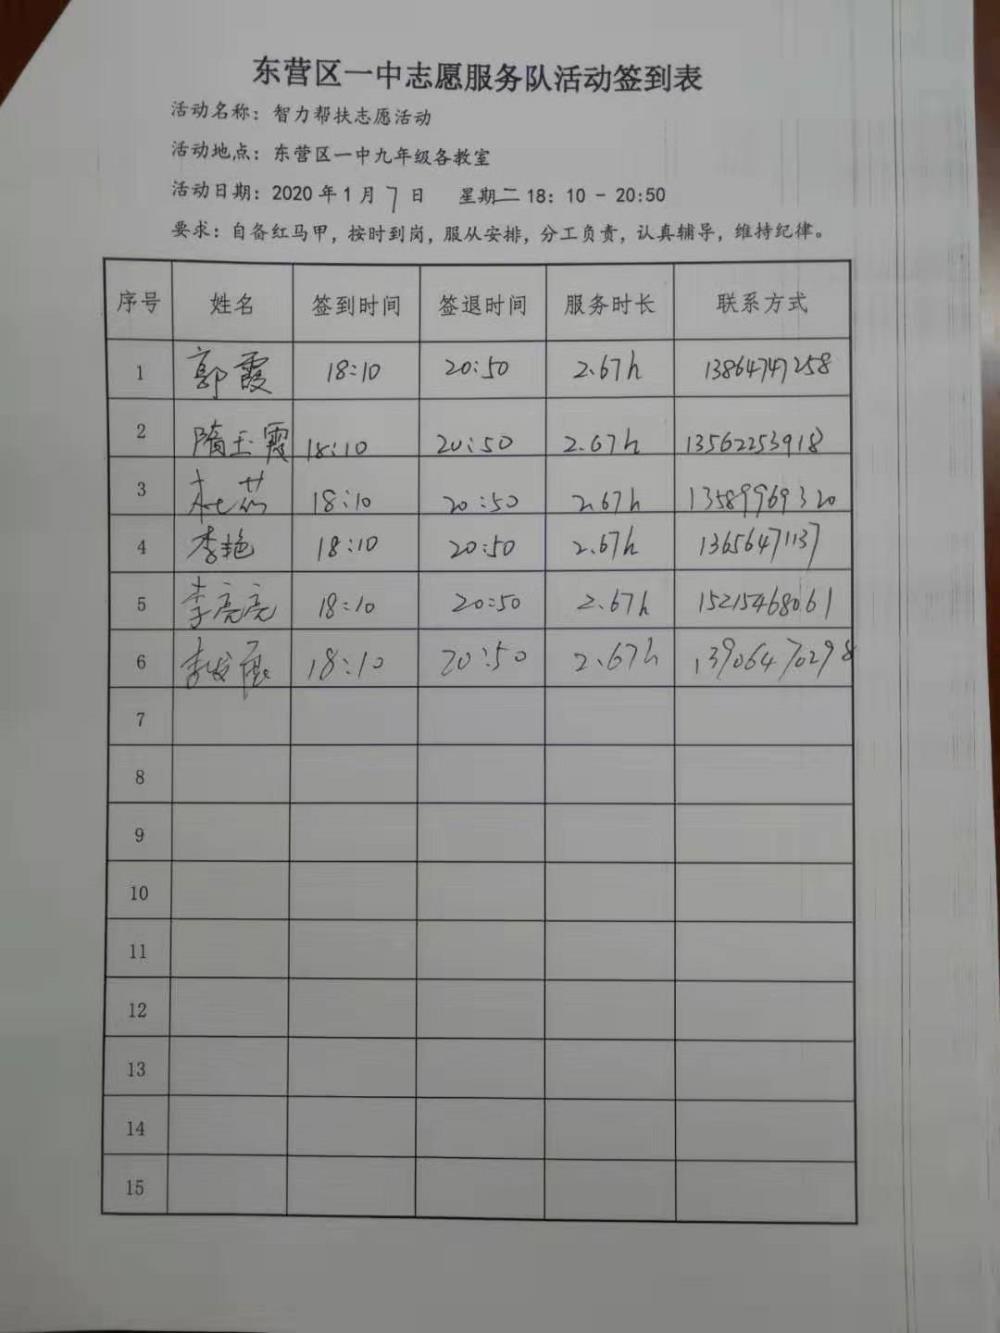 东营区一中志愿服务队活动签到表
活动名称：智力帮扶志愿活动
活动地点：东营区一中九年级各教室
活动日期：2020年1月7日 星期二18：10－20:50
要求：自备红马甲，按时到岗，服从安排，分工负责，认真辅导，维持纪律。
序号 姓名 签到时间 签退时间 服务时长 联系方式
1 郭霞 18:10 20:50 2.67h 13864747258
2 隋玉霞 18:10 20:50 2.67h 13562253918
3 杜茹 18:10 20:50 2.67h 13589969320
4 李艳 18:10 20:50 2.67h 13656471137
5 李亮亮 18:10 20:50 2.67h 15215468061
6 李发展 18:10 20:50 2.67h 13906470298
7
8
9
10
11
12
13
14
15